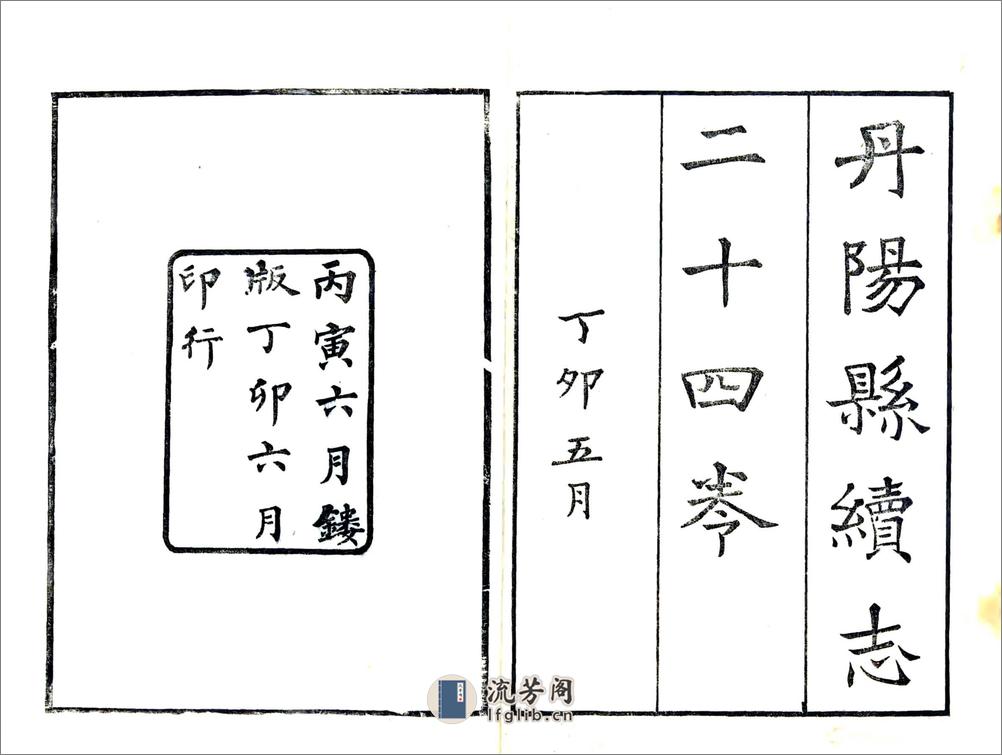 丹陽縣續志
二十四卷
丁卯五月
丙寅六月鏤
版丁卯六月
印行
流芳阁
lfglib.cn